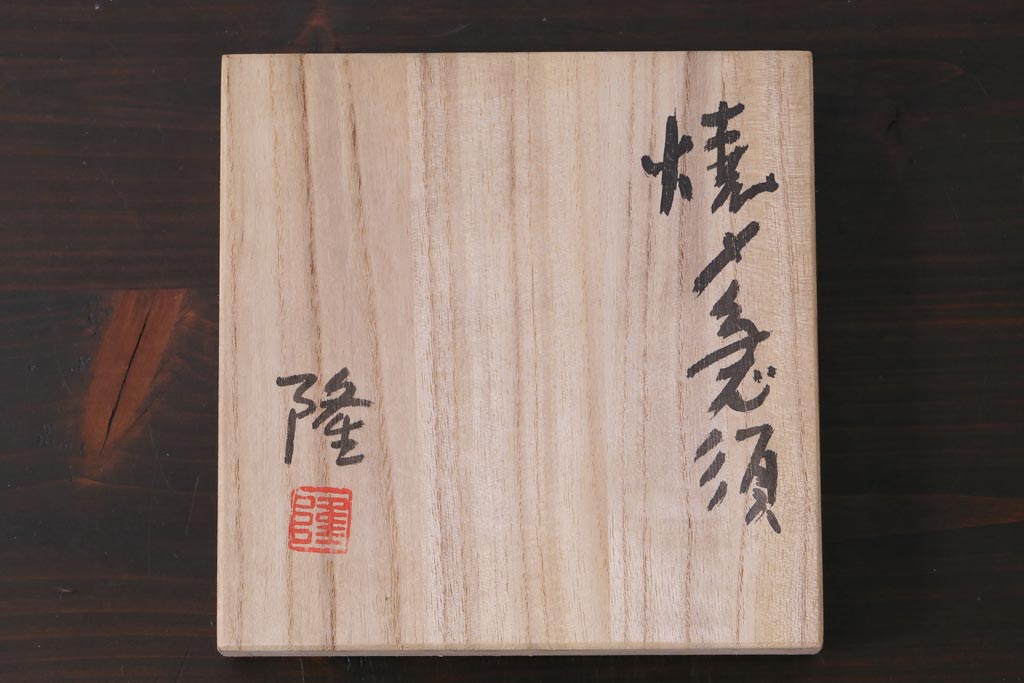 焼〆急須
隆
隆